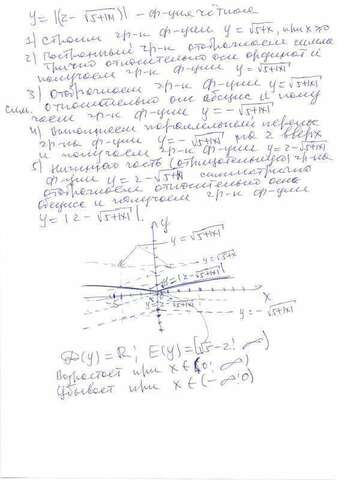 y = |(2 - √5+|x|)| - ф-ция чётная
1) Строим гр-к ф-ции y = √5+x, при x≥0
2) Построенный гр-к отображаем симме
трично относительно оси ординат и
получаем гр-к ф-ции y = √5+|x|
3) Отображаем гр-к ф-ции y = √5+|x|
сим. относительно оси абсцисс и полу
чаем гр-к ф-ции y = -√5+|x|
4) Выполняем параллельный перенос
гр-ка ф-ции y = -√5+|x| на 2 вверх
и получаем гр-к ф-ции y = 2-√5+|x|
5) Нижнюю часть (отрицательную) гр-ка
ф-ции y = 2-√5+|x| симметрично
отображаем относительно оси
абсцисс и получаем гр-к ф-ции
y = |2 - √5+|x||.
y
y = √5+|x|
y = √5+x
y = |2-√5+|x||
x
-5
y = 2-√5+|x|
y = -√5+|x|
D(y) = R; E(y) = [√5-2; ∞)
Возрастает при x ∈ (0; ∞)
Убывает при x ∈ (-∞; 0)